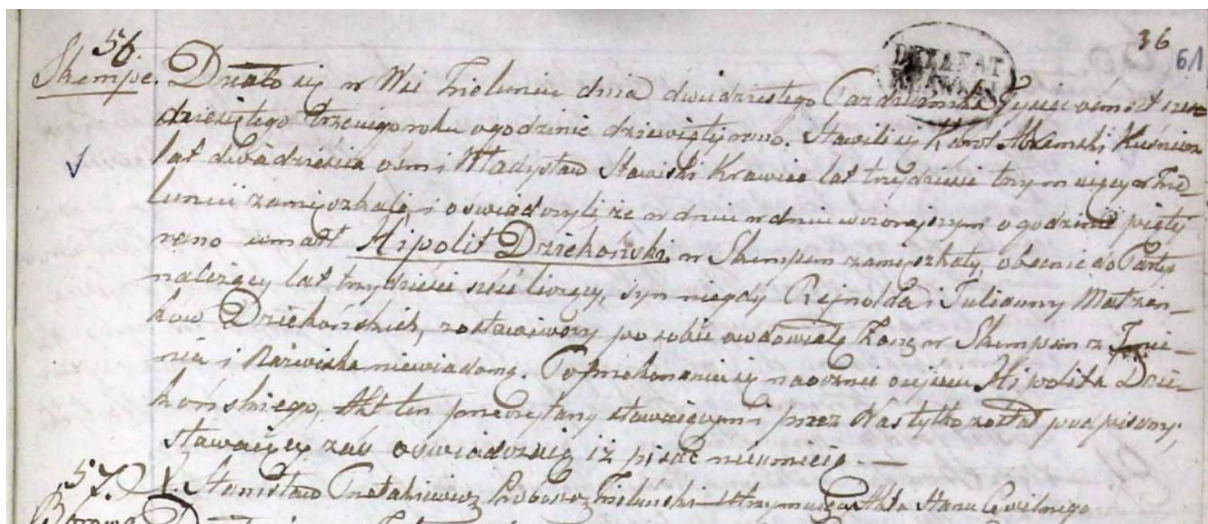 36
61
56.
Skempe. Działo się w Wsi Zieluniu dnia dwudziestego Października Tysiąc ośmset sześć
dziesiątego trzeciego roku o godzinie dziewiąty rano. Stawili się Karol Kuśnierz
lat dwadzieścia ośm i Władysław Stawiski Krawiec lat trzydzieści trzy w Zie-
luniu zamięszkałe, i oświadczyli że w dniu w dniu wczorajszym o godzinie piąty
rano umarł Hipolit Dziekoński w Skempem zamięszkały, obecnie do Partyi
należący lat trzydzieści sześć liczący, syn niegdy Rejnolda i Julianny Małżon-
ków Dziekońskich, zostawiwszy po sobie owdowiałę Żonę w Skempem z Imie-
nia i Nazwiska niewiadomą. Po przekonaniu się naocznie o zejściu Hipolita Dzie-
końskiego, Akt ten przeczytany stawaiącym i przez Nas tylko został podpisany,
stawaiący zaś oświadczaią iż pisać nieumieią. —
57. X. Stanisław Proboszcz Zieluński Utrzymuiący Akta Stanu Cywilnego